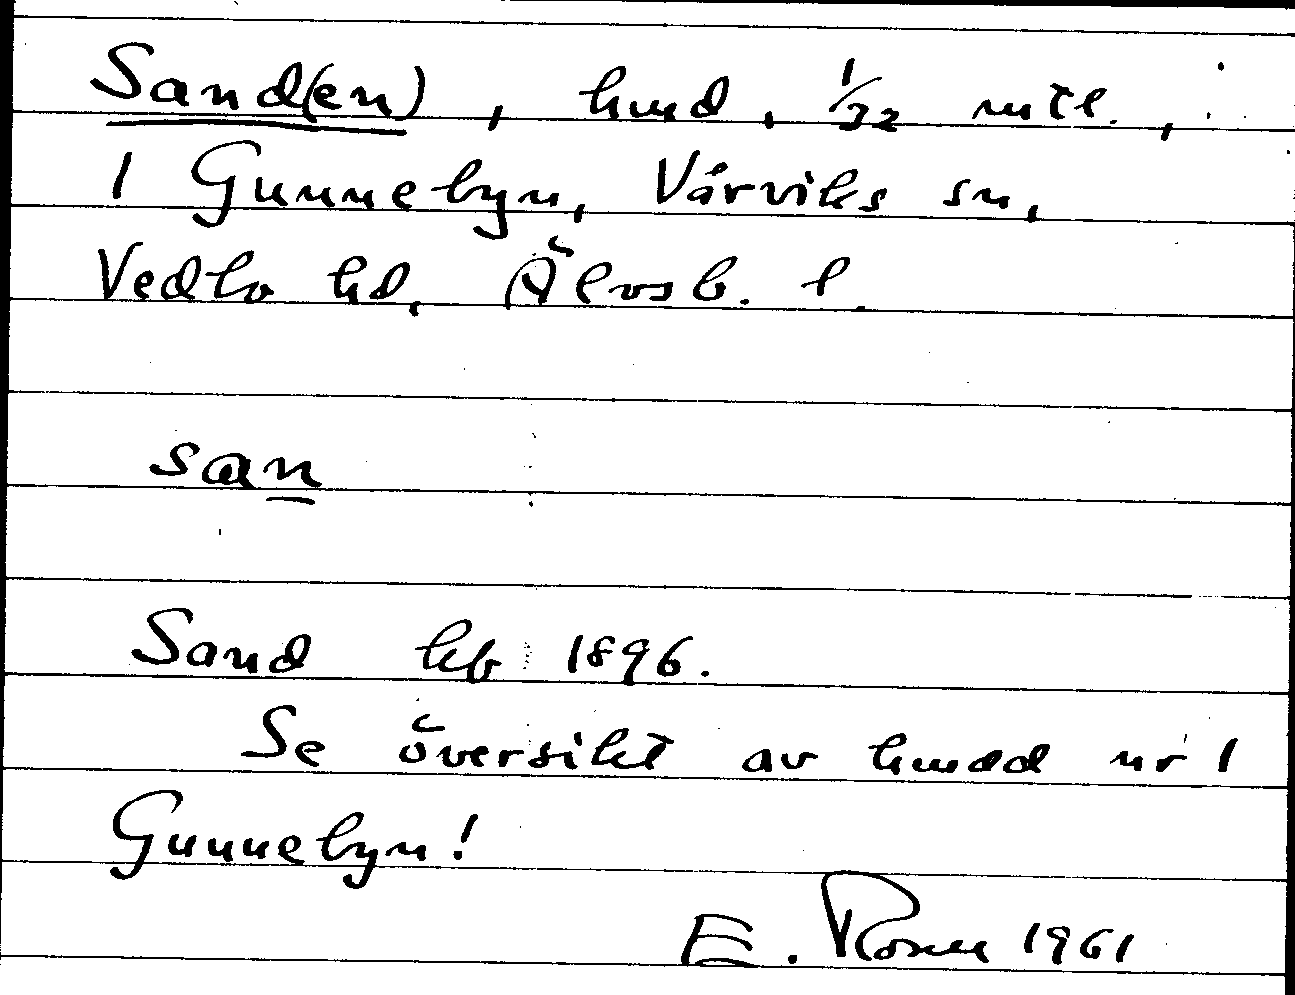 Sand(en), hmd, 1/32 mtl.,
1 Gunnebyn, Vårviks sn,
Vedbo hd, Älvsb. l.
san
Sand kb 1896.
Se översikt av hmdd nr 1
Gunnebyn!
E. Rosen 1961